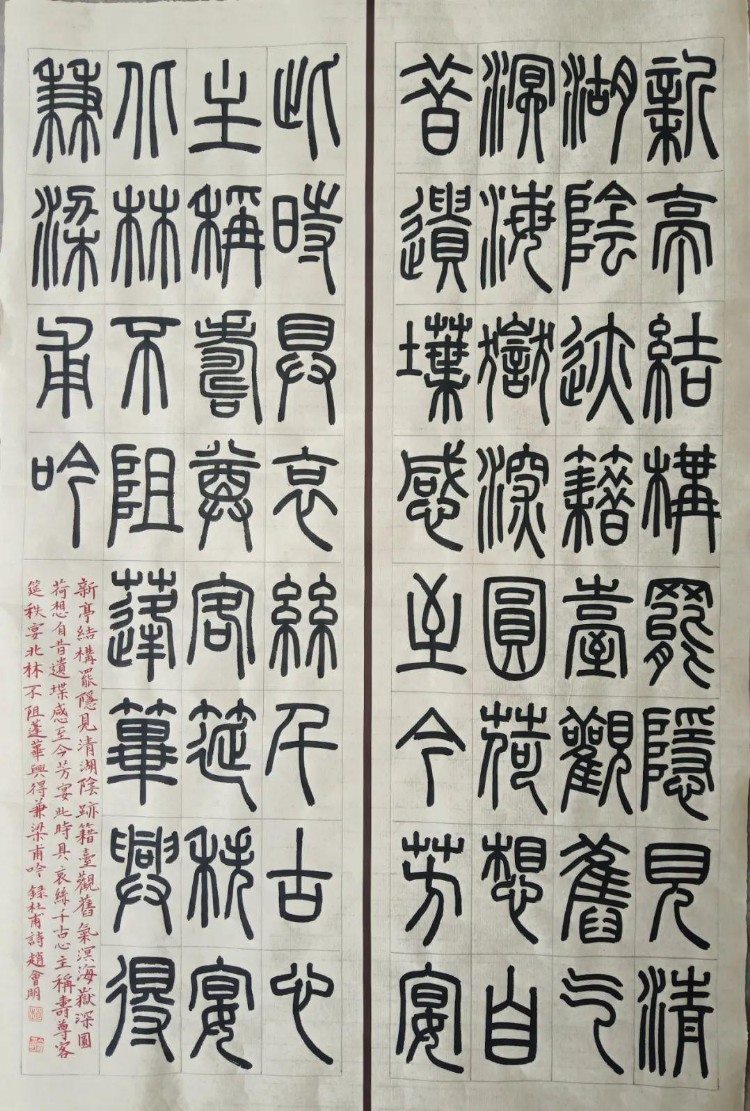 新亭結構罷隱見清
湖陰迹籍臺觀舊气
溟海嶽深圓荷想自
昔遺堞感至今芳宴
此時具哀絲千古心
主稱壽尊客筵秩宴
北林不阻蓬蓽興得
兼梁甫吟
新亭結構罷隱見清湖陰跡籍臺觀舊氣溟海嶽深圓
荷想自昔遺堞感至今芳宴此時具哀絲千古心主稱壽尊客
筵秩宴北林不阻蓬蓽興得兼梁甫吟 錄杜甫詩 趙會明